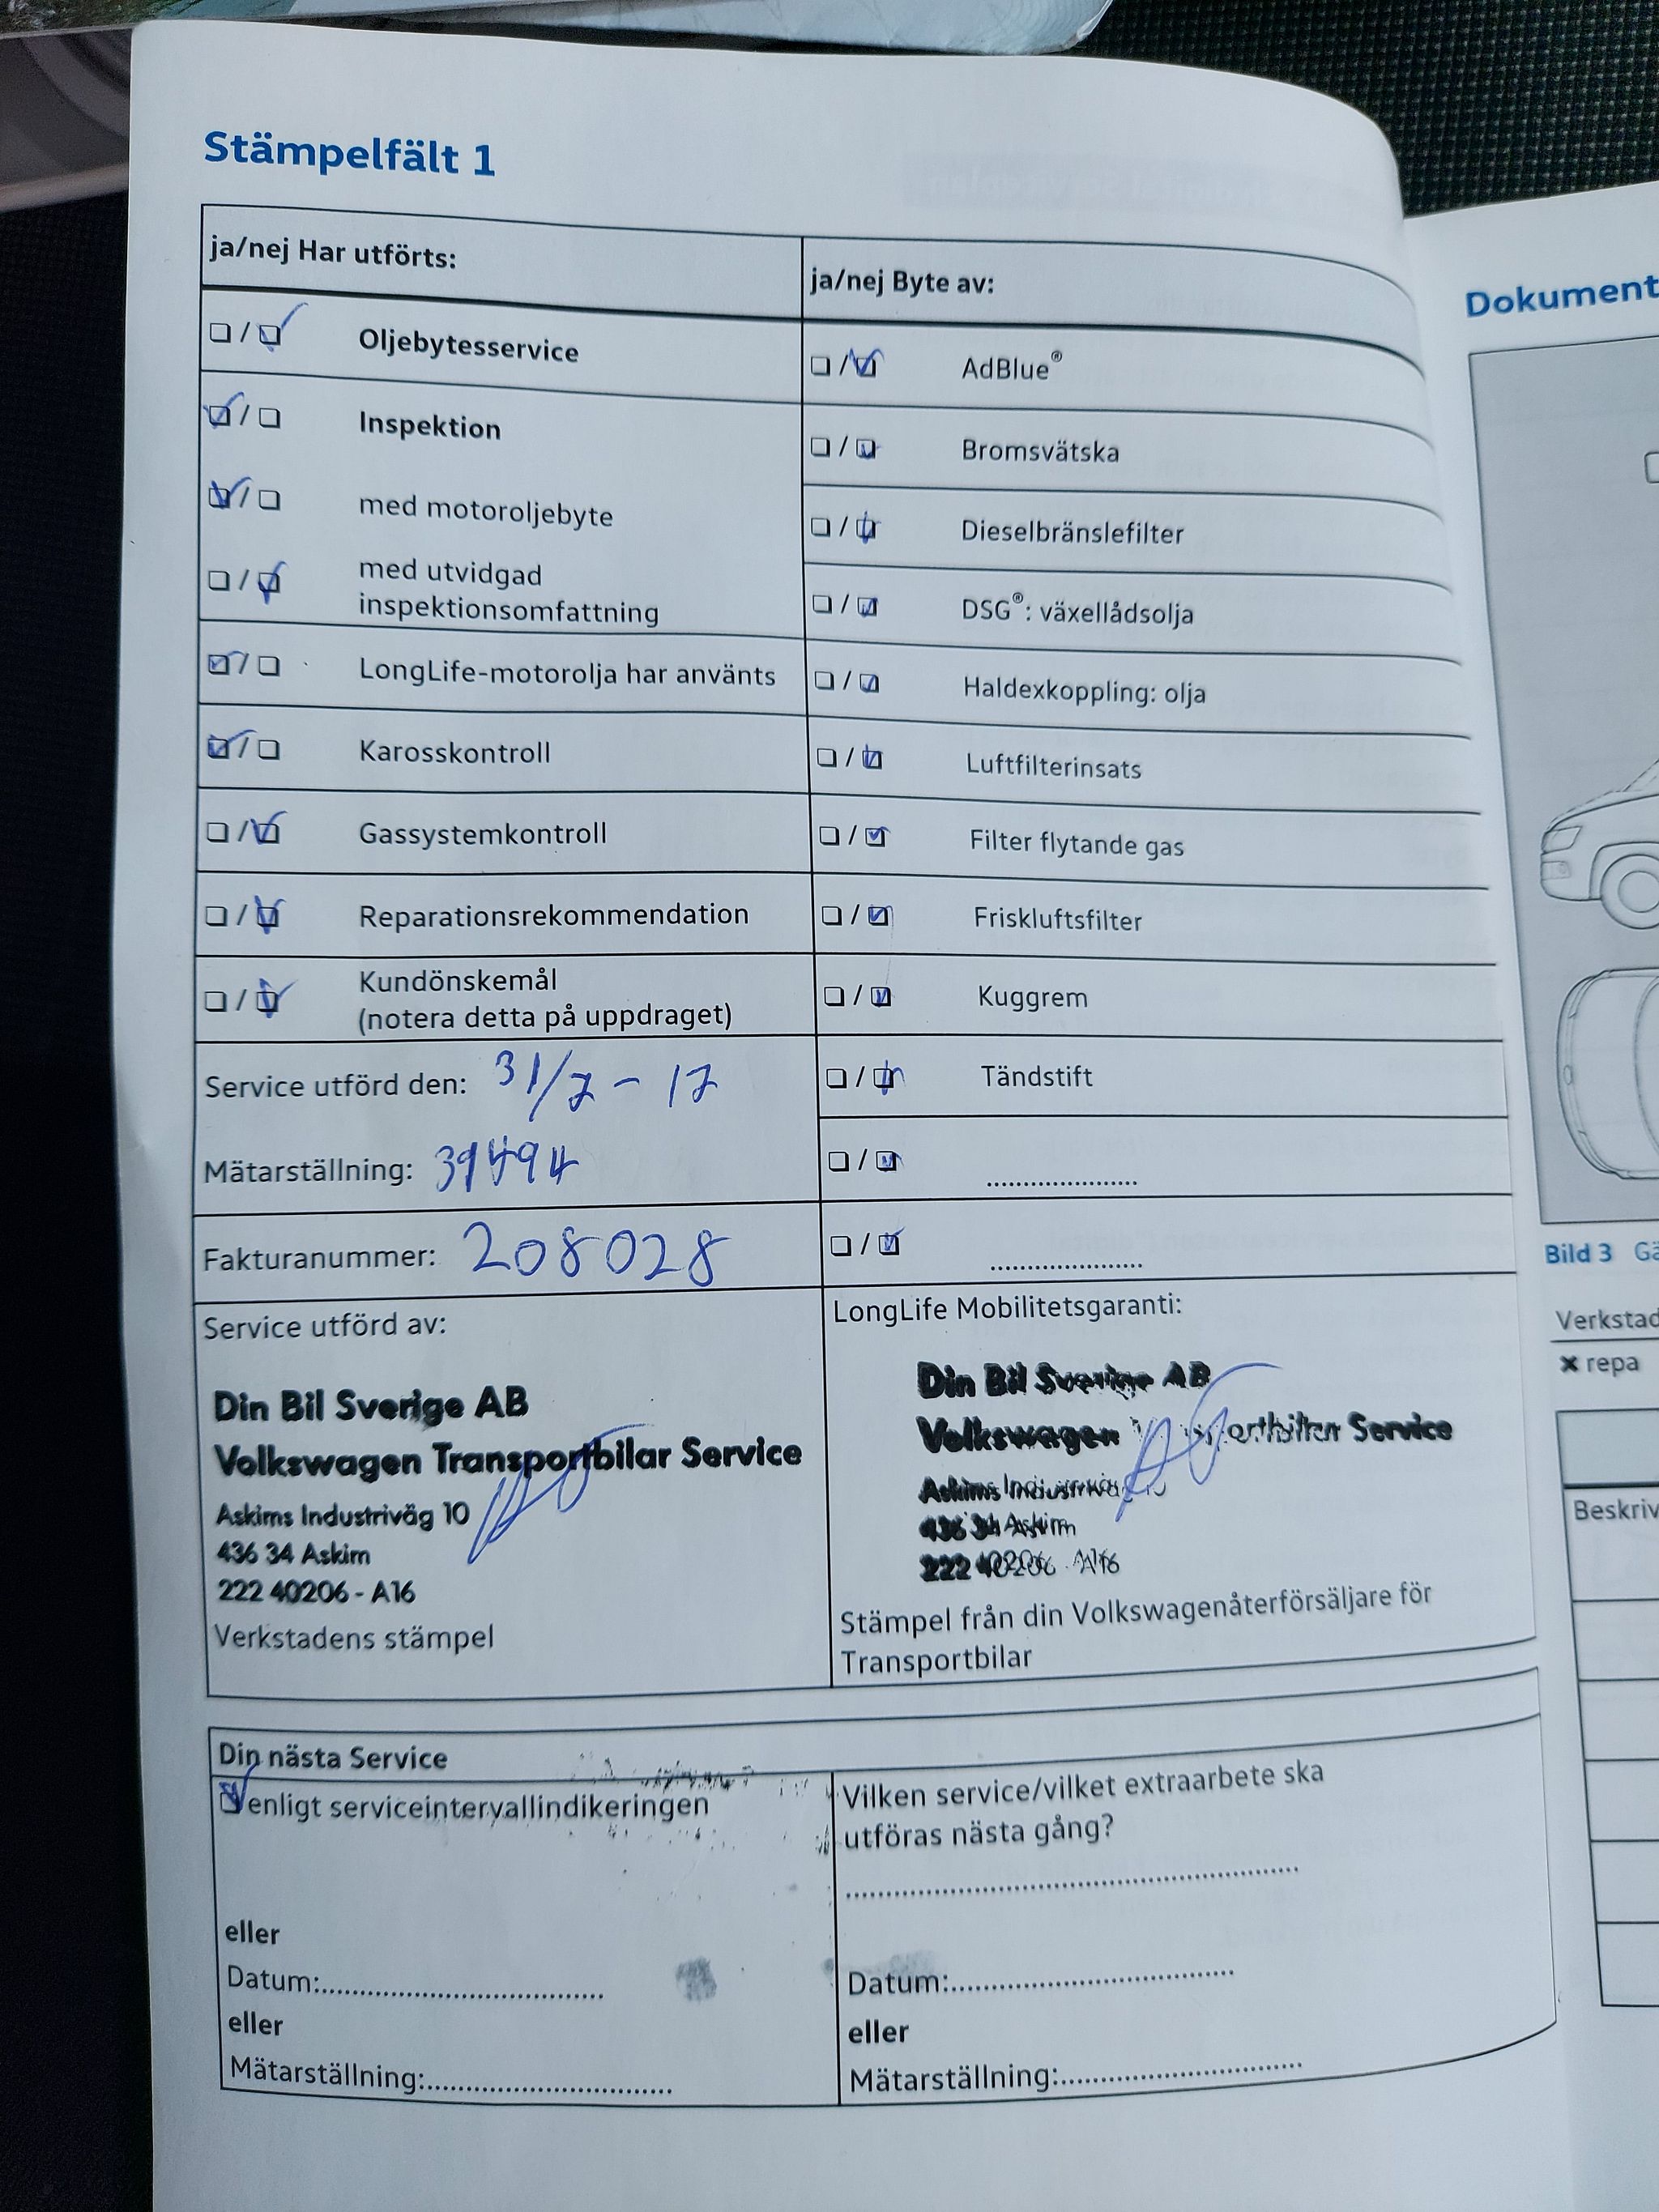 Stämpelfält 1
ja/nej Har utförts:
Oljebytesservice
Inspektion
med motoroljebyte
med utvidgad
inspektionsomfattning
LongLife-motorolja har använts
Karosskontroll
Gassystemkontroll
Reparationsrekommendation
Kundönskemål
(notera detta på uppdraget)
Service utförd den: 31/7 - 17
Mätarställning: 39494
Fakturanummer: 208028
Service utförd av:
Din Bil Sverige AB
Volkswagen Transportbilar Service
Askims Industriväg 10
436 34 Askim
222 40206 - A16
Verkstadens stämpel
ja/nej Byte av:
AdBlue®
Bromsvätska
Dieselbränslefilter
DSG®: växellådsolja
Haldexkoppling: olja
Luftfilterinsats
Filter flytande gas
Friskluftsfilter
Kuggrem
Tändstift
LongLife Mobilitetsgaranti:
Din Bil Sverige AB
Volkswagen Transportbilar Service
Askims Industriväg 10
436 34 Askim
222 40206 - A16
Stämpel från din Volkswagenåterförsäljare för
Transportbilar
Din nästa Service
enligt serviceintervallindikeringen
eller
Datum:
eller
Mätarställning:
Vilken service/vilket extraarbete ska
utföras nästa gång?
Datum:
eller
Mätarställning:
Dokument
Bild 3
Verkstad
repa
Beskriv